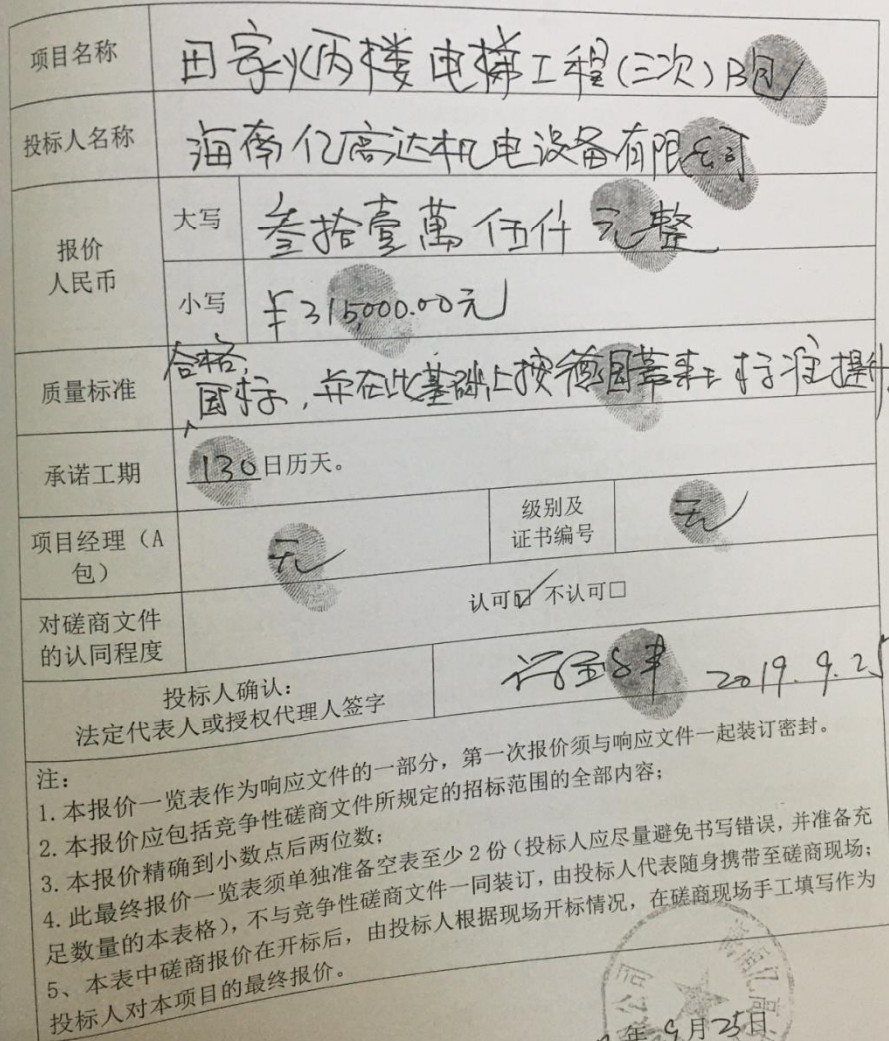 项目名称 田家炳楼电梯工程(三次)B包
投标人名称 海南亿高达机电设备有限公司
报价
人民币
大写 叁拾壹萬伍仟元整
小写 ¥315,000.00元
合格,
质量标准 国标,并在此基础上按德国蒂森标准提升
承诺工期 130日历天。
项目经理(A
包)
无
级别及
证书编号
无
对磋商文件
的认同程度
认可☑ 不认可□
投标人确认:
法定代表人或授权代理人签字
2019.9.25
注:
1.本报价一览表作为响应文件的一部分,第一次报价须与响应文件一起装订密封。
2.本报价应包括竞争性磋商文件所规定的招标范围的全部内容;
3.本报价精确到小数点后两位数;
4.此最终报价一览表须单独准备空表至少2份(投标人应尽量避免书写错误,并准备充
足数量的本表格),不与竞争性磋商文件一同装订,由投标人代表随身携带至磋商现场;
5、本表中磋商报价在开标后,由投标人根据现场开标情况,在磋商现场手工填写作为
投标人对本项目的最终报价。
年9月25日